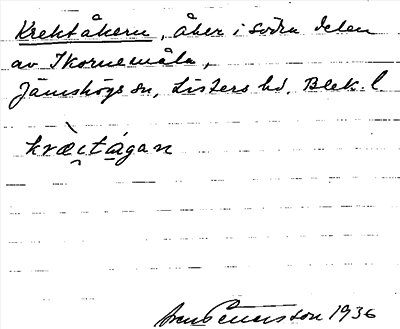 Krektåkern, åker i södra delen
av Skornemåla,
Jämshögs sn, Listers hd, Blek. l
kræ̀ıtágan
Sven Pettersson 1936